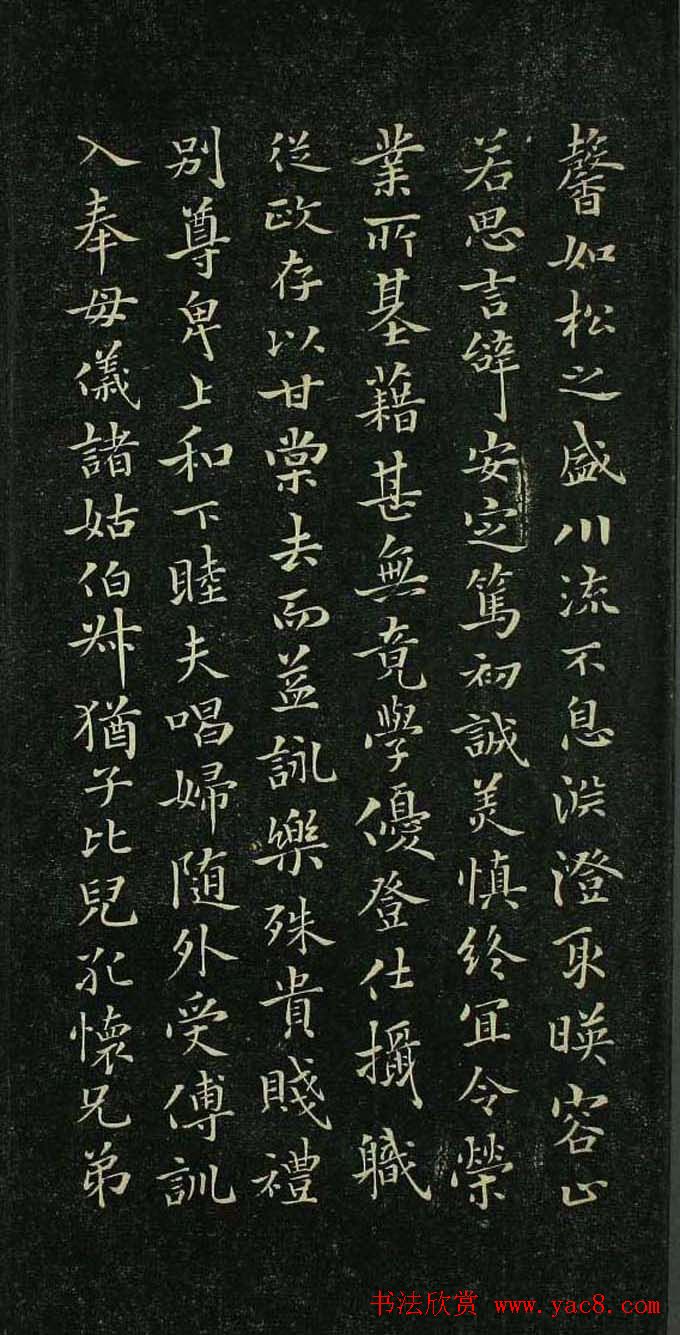 馨如松之盛川流不息淵澄取暎容止
若思言辭安定篤初誠美慎終宜令榮
業所基藉甚無竟學優登仕攝職
從政存以甘棠去而益詠樂殊貴賤禮
別尊卑上和下睦夫唱婦随外受傅訓
入奉母儀諸姑伯叔猶子比兒孔懷兄弟
书法欣赏 www.yac8.com